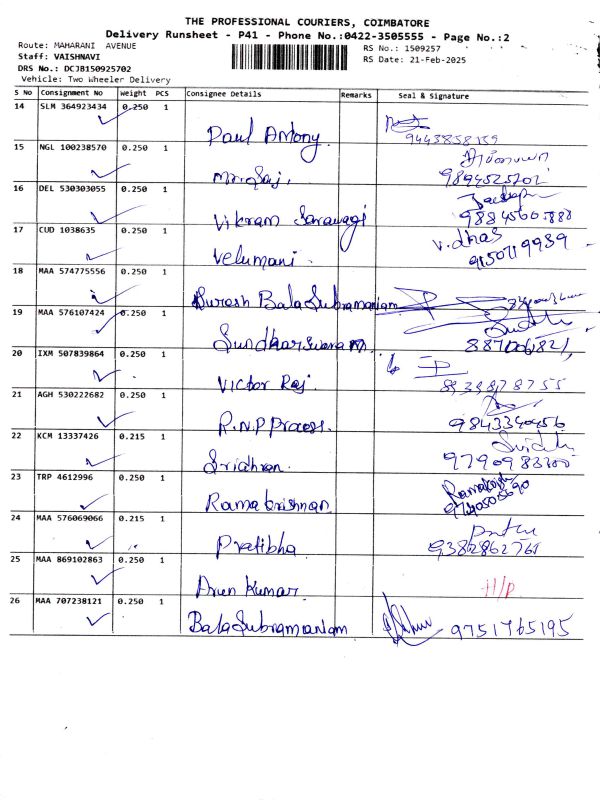 THE PROFESSIONAL COURIERS, COIMBATORE
Delivery Runsheet - P41 - Phone No.:0422-3505555 - Page No.:2
Route: MAHARANI AVENUE
RS No.: 1509257
Staff: VAISHNAVI
RS Date: 21-Feb-2025
DRS No.: DCJB150925702
Vehicle: Two Wheeler Delivery
S No Consignment No Weight PCS Consignee Details Remarks Seal & Signature
14 SLM 364923434 0.250 1
Paul Antony 9443858159
15 NGL 100238570 0.250 1
9894525702
16 DEL 530303055 0.250 1
Vikram Sarawagi 9884560888
17 CUD 1038635 0.250 1 V.dhas
Velumani. 9150719939
18 MAA 574775556 0.250 1
Suresh Bala Subramaniam
19 MAA 576107424 0.250 1
Sundharswaram
20 IXM 507839864 0.250 1
Victor Raj.
21 AGH 530222682 0.250 1
R.N.P Process. 9843340456
22 KCM 13337426 0.215 1
Sridhran. 9790983300
23 TRP 4612996 0.250 1
Ramakrishnan
24 MAA 576069066 0.215 1
Pratibha 9382862761
25 MAA 869102863 0.250 1
Arun Kumar H/P
26 MAA 707238121 0.250 1
Bala Subramaniam 9751765195